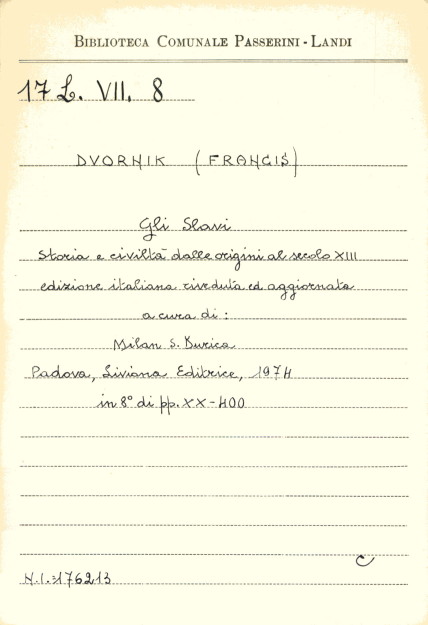 BIBLIOTECA COMUNALE PASSERINI - LANDI
17 L. VII. 8
DVORNIK (FRANCIS)
Gli Slavi
Storia e civiltà dalle origini al secolo XIII
edizione italiana riveduta ed aggiornata
a cura di :
Milan S. Durica
Padova, Liviana Editrice, 1974
in 8° di pp. XX-400
C
N.I.=176213